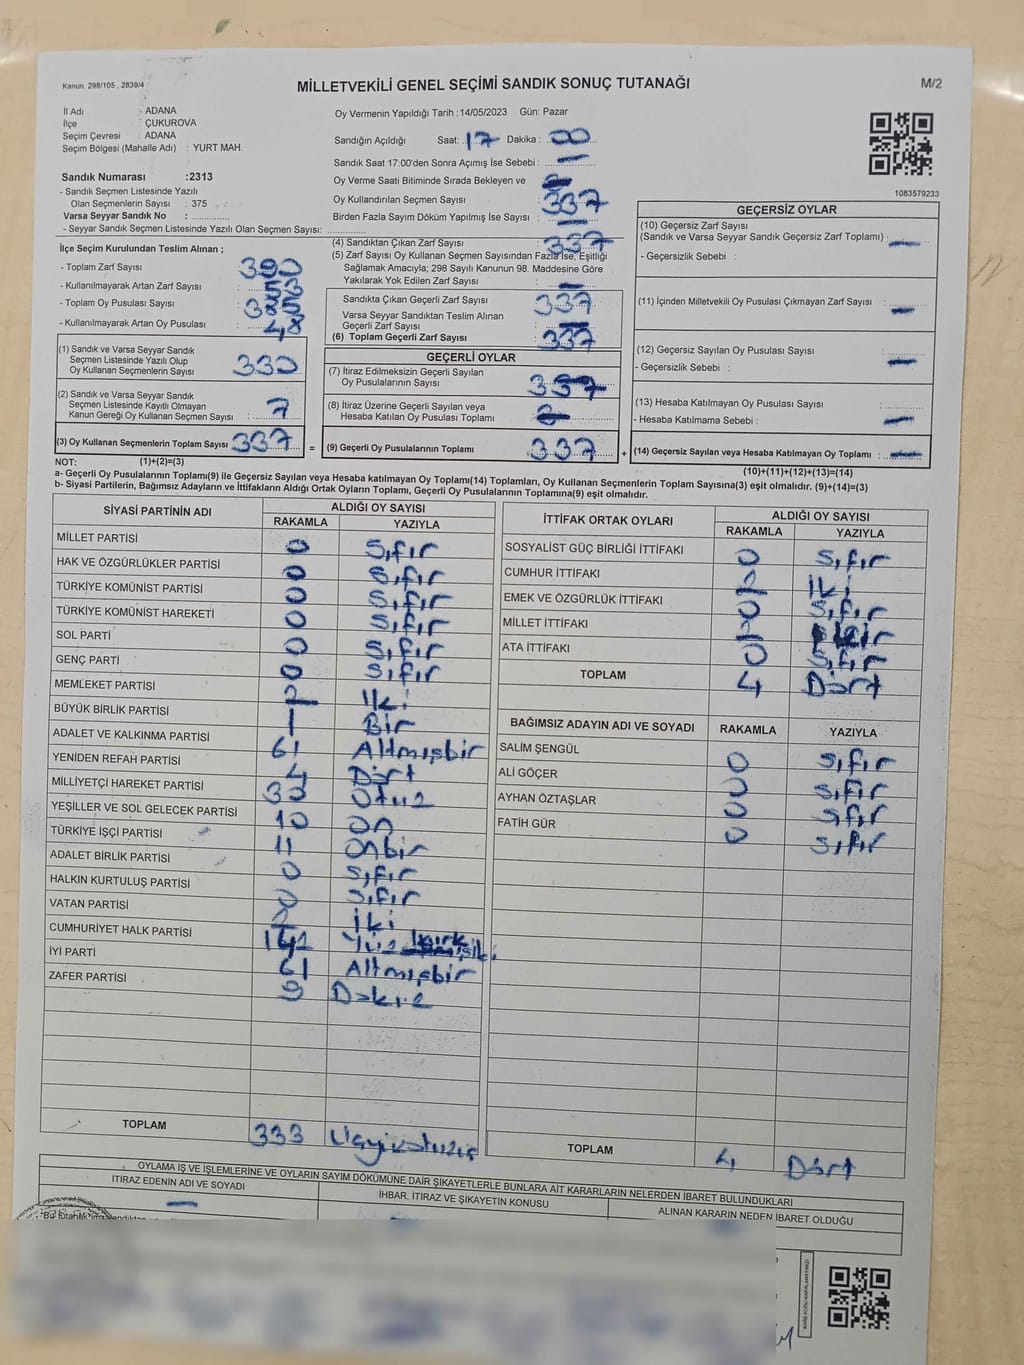 Kanun 298/105 , 2839/4
MİLLETVEKİLİ GENEL SEÇİMİ SANDIK SONUÇ TUTANAĞI
M/2
İl Adı : ADANA
İlçe : ÇUKUROVA
Seçim Çevresi : ADANA
Seçim Bölgesi (Mahalle Adı) : YURT MAH.
Sandık Numarası :2313
- Sandık Seçmen Listesinde Yazılı
Olan Seçmenlerin Sayısı : 375
Varsa Seyyar Sandık No :
- Seyyar Sandık Seçmen Listesinde Yazılı Olan Seçmen Sayısı:
Oy Vermenin Yapıldığı Tarih :14/05/2023 Gün: Pazar
Sandığın Açıldığı Saat: 17 Dakika : 00
Sandık Saat 17:00'den Sonra Açımış İse Sebebi : —
Oy Verme Saati Bitiminde Sırada Bekleyen ve
Oy Kullandırılan Seçmen Sayısı : 337
Birden Fazla Sayım Döküm Yapılmış İse Sayısı : —
1083579233
İlçe Seçim Kurulundan Teslim Alınan ;
- Toplam Zarf Sayısı : 390
- Kullanılmayarak Artan Zarf Sayısı : 53
- Toplam Oy Pusulası Sayısı : 385
- Kullanılmayarak Artan Oy Pusulası : 48
(1) Sandık ve Varsa Seyyar Sandık
Seçmen Listesinde Yazılı Olup
Oy Kullanan Seçmenlerin Sayısı : 330
(2) Sandık ve Varsa Seyyar Sandık
Seçmen Listesinde Kayıtlı Olmayan
Kanun Gereği Oy Kullanan Seçmen Sayısı : 7
(3) Oy Kullanan Seçmenlerin Toplam Sayısı : 337
(4) Sandıktan Çıkan Zarf Sayısı : 337
(5) Zarf Sayısı Oy Kullanan Seçmen Sayısından Fazla İse, Eşitliği
Sağlamak Amacıyla; 298 Sayılı Kanunun 98. Maddesine Göre
Yakılarak Yok Edilen Zarf Sayısı : —
Sandıkta Çıkan Geçerli Zarf Sayısı : 337
Varsa Seyyar Sandıktan Teslim Alınan
Geçerli Zarf Sayısı : —
(6) Toplam Geçerli Zarf Sayısı : 337
GEÇERLİ OYLAR
(7) İtiraz Edilmeksizin Geçerli Sayılan
Oy Pusulalarının Sayısı : 337
(8) İtiraz Üzerine Geçerli Sayılan veya
Hesaba Katılan Oy Pusulası Toplamı :
= (9) Geçerli Oy Pusulalarının Toplamı : 337
GEÇERSİZ OYLAR
(10) Geçersiz Zarf Sayısı
(Sandık ve Varsa Seyyar Sandık Geçersiz Zarf Toplamı) : —
- Geçersizlik Sebebi :
(11) İçinden Milletvekili Oy Pusulası Çıkmayan Zarf Sayısı : —
(12) Geçersiz Sayılan Oy Pusulası Sayısı : —
- Geçersizlik Sebebi :
(13) Hesaba Katılmayan Oy Pusulası Sayısı :
- Hesaba Katılmama Sebebi : —
+ (14) Geçersiz Sayılan veya Hesaba Katılmayan Oy Toplamı : —
NOT: (1)+(2)=(3)
(10)+(11)+(12)+(13)=(14)
a- Geçerli Oy Pusulalarının Toplamı(9) ile Geçersiz Sayılan veya Hesaba katılmayan Oy Toplamı(14) Toplamları, Oy Kullanan Seçmenlerin Toplam Sayısına(3) eşit olmalıdır. (9)+(14)=(3)
b- Siyasi Partilerin, Bağımsız Adayların ve İttifakların Aldığı Ortak Oyların Toplamı, Geçerli Oy Pusulalarının Toplamına(9) eşit olmalıdır.
SİYASİ PARTİNİN ADI ALDIĞI OY SAYISI
RAKAMLA YAZIYLA
MİLLET PARTİSİ 0 Sıfır
HAK VE ÖZGÜRLÜKLER PARTİSİ 0 Sıfır
TÜRKİYE KOMÜNİST PARTİSİ 0 Sıfır
TÜRKİYE KOMÜNİST HAREKETİ 0 Sıfır
SOL PARTİ 0 Sıfır
GENÇ PARTİ 0 Sıfır
MEMLEKET PARTİSİ 2 İki
BÜYÜK BİRLİK PARTİSİ 1 Bir
ADALET VE KALKINMA PARTİSİ 61 Altmışbir
YENİDEN REFAH PARTİSİ 4 Dört
MİLLİYETÇİ HAREKET PARTİSİ 30 Otuz
YEŞİLLER VE SOL GELECEK PARTİSİ 10 On
TÜRKİYE İŞÇİ PARTİSİ 11 Onbir
ADALET BİRLİK PARTİSİ 0 Sıfır
HALKIN KURTULUŞ PARTİSİ 0 Sıfır
VATAN PARTİSİ 2 İki
CUMHURİYET HALK PARTİSİ 142 Yüz kırk
İYİ PARTİ 61 Altmışbir
ZAFER PARTİSİ 9 Dokuz
TOPLAM 333 Üçyüzotuzüç
İTTİFAK ORTAK OYLARI ALDIĞI OY SAYISI
RAKAMLA YAZIYLA
SOSYALİST GÜÇ BİRLİĞİ İTTİFAKI 0 Sıfır
CUMHUR İTTİFAKI 2 İki
EMEK VE ÖZGÜRLÜK İTTİFAKI 0 Sıfır
MİLLET İTTİFAKI
ATA İTTİFAKI 0 Sıfır
TOPLAM 4 Dört
BAĞIMSIZ ADAYIN ADI VE SOYADI RAKAMLA YAZIYLA
SALİM ŞENGÜL 0 Sıfır
ALİ GÖÇER 0 Sıfır
AYHAN ÖZTAŞLAR 0 Sıfır
FATİH GÜR 0 Sıfır
TOPLAM 4 Dört
OYLAMA İŞ VE İŞLEMLERİNE VE OYLARIN SAYIM DÖKÜMÜNE DAİR ŞİKAYETLERLE BUNLARA AİT KARARLARIN NELERDEN İBARET BULUNDUKLARI
İTİRAZ EDENİN ADI VE SOYADI
İHBAR, İTİRAZ VE ŞİKAYETİN KONUSU
ALINAN KARARIN NEDEN İBARET OLDUĞU